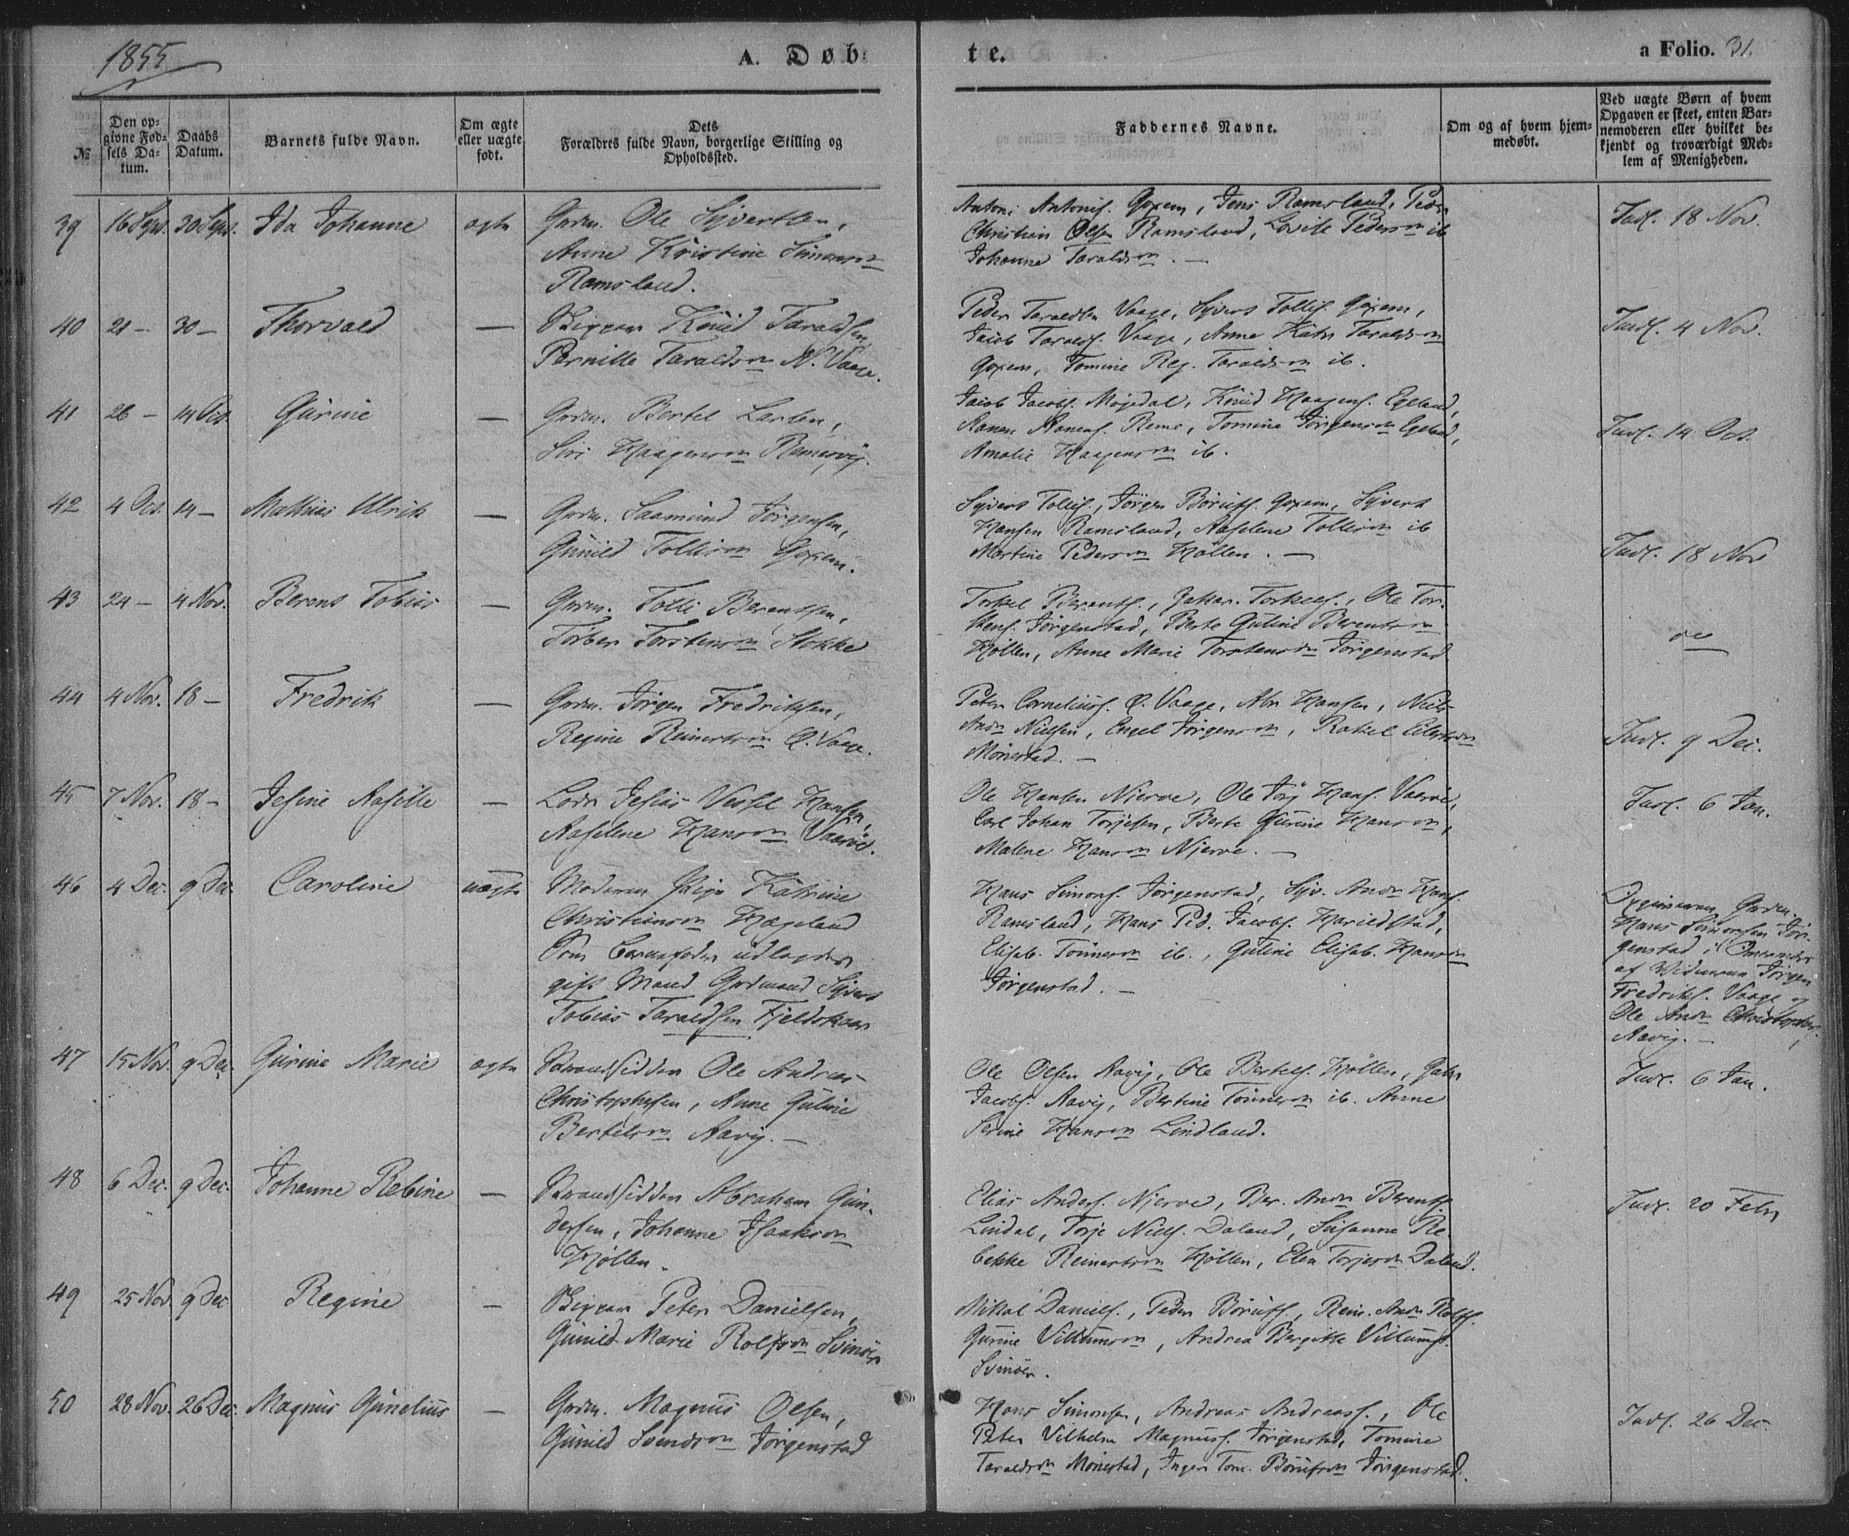 1855
A. Døb
te.
a Folio. 31.
№
Den op-
givne Fød-
sels Da-
tum.
Daabs
Datum.
Barnets fulde Navn.
Om ægte
eller uægte
født.
Dets
Forældres fulde Navn, borgerlige Stilling og
Opholdssted.
Faddernes Navne.
Om og af hvem hjem-
medøbt.
Ved uægte Børn af hvem
Opgaven er skeet, enten Bar-
nemoderen eller hvilket be-
kjendt og troværdigt Med-
lem af Menigheden.
39 16 Sept. 30 Sept. Ida Johanne ægte
Grdm. Ole Syvertsen,
Anne Kristine Simonsn
Ramsland.
Antoni Antonis. Goxem, Jens Ramsland, Peder
Christian Olsen Ramsland, Lovise Pedersn ib
Johanne Taraldsn. —
Indl. 18 Nov.
40 21 — 30 — Thorvald —
Knud Taraldsen
Pernille Taraldsn N. Vaage.
Peder Taraldsen Vaage, Syvert Tollifs. Goxem,
Jacob Taralds. Vaage, Anne Katr. Taraldsn
Goxem, Tomine Reg. Taraldsn ib.
Indl. 4 Nov.
41 26 — 14 Oct. Gurine —
Grdm. Bertel Larsen,
Siri Haagensn Remesvig.
Jacob Jacobs. Møgedal, Knud Haagens. Egeland,
Aanen Aanens. Reme, Tomine Jørgensn Egeland,
Amalie Haagensn ib.
Indl. 14 Oct.
42 4 Oct. 14 — Mathias Ulrik —
Grdm. Saamund Jørgensen,
Gunild Tollisn Goxem.
Syvert Tollifs., Jørgen Børufs. Goxem, Syvert
Hansen Ramsland, Aaselene Tollisn ib
Martine Pedersn Høllen. —
Indl. 18 Nov
43 24 — 4 Nov. Berent Tobias —
Grdm. Tolli Berentsen,
Torbor Torstensn Stokke
Torkel Berents., Zakar. Torkels., Ole Tor-
stens. Jørgenstad, Berte Gutine Berentsn
Høllen, Anne Marie Torstensn Jørgenstad
do
44 4 Nov. 18 — Fredrik —
Grdm. Jørgen Fredriksen,
Regine Reinertsn Ø. Vaage.
Peter Cornelius. Ø. Vaage, Abr. Hansen, Niels
Andr. Nielsen, Engel Jørgensn, Rakel Eilertsn
Mønestad. —
Indl. 9 Dec.
45 7 Nov. 18 — Jesine Aasille —
Lods Jesias Vessel Hansen,
Aaselene Hansn Vaarøe.
Ole Hansen Njerve, Ole Jørg. Hans. Vaarøe,
Carl Johan Torjesen, Berte Gurine Hansn,
Malene Hansn Njerve. —
Indl. 6 Jan.
46 4 Dec. 9 Dec. Caroline uægte
Moderen Pige Katrine
Christiansn Hageland
Som Barnefader udlagdes
gift Mand Grdmand Syvert
Tobias Taraldsen Fjeldskaar
Hans Simons. Jørgenstad, Syv. Andr. Hans.
Ramsland, Hans Ped. Jacobs. Harildstad,
Elisab. Tønnesn ib., Gutine Elisab. Hansn
Jørgenstad. —
Opgiveren Grdm.
Hans Simonsen Jør-
genstad i Overvær
af Vidnerne Jørgen
Fredriks. Vaage og
Ole Andr. Christophers.
Aavig. —
47 15 Nov. 9 Dec. Gurine Marie ægte
Strandsidder Ole Andreas
Christophersen, Anne Gutine
Bertelsn Aavig. —
Ole Olsen Aavig, Ole Bertels. Høllen, Gabr.
Jacobs. Aavig, Bertine Tønnesn ib. Anne
Serine Hansn Lindland.
Indl. 6 Jan.
48 6 Dec. 9 Dec. Johanne Rebine —
Strandsidder Abraham Gun-
dersen, Johanne Isaksn
Høllen.
Elias Anders. Njerve, Ber. Andr. Berents.
Lindal, Torje Niels. Daland, Susanne Re-
bekke Reinertsn Høllen, Elen Torjesn Daland.
Indl. 20 Febr
49 25 Nov. 9 Dec Regine —
Peter Danielsen,
Gunild Marie Rolfsn Svinør
Mikal Daniels., Peder Børufs., Rein. Andr. Rolfs.
Gurine Villumsn, Andrea Bergitte Villums.
Svinør.
50 28 Nov. 26 Dec. Magnus Gunelius —
Grdm. Magnus Olsen,
Gunild Svendsn Jørgenstad
Hans Simonsen, Andreas Andreass., Ole
Peter Vilhelm Magnuss. Jørgenstad, Tomine
Taraldsn Mønestad, Inger Tom. Børufsn Jørgenstad.
Indl. 26 Dec.